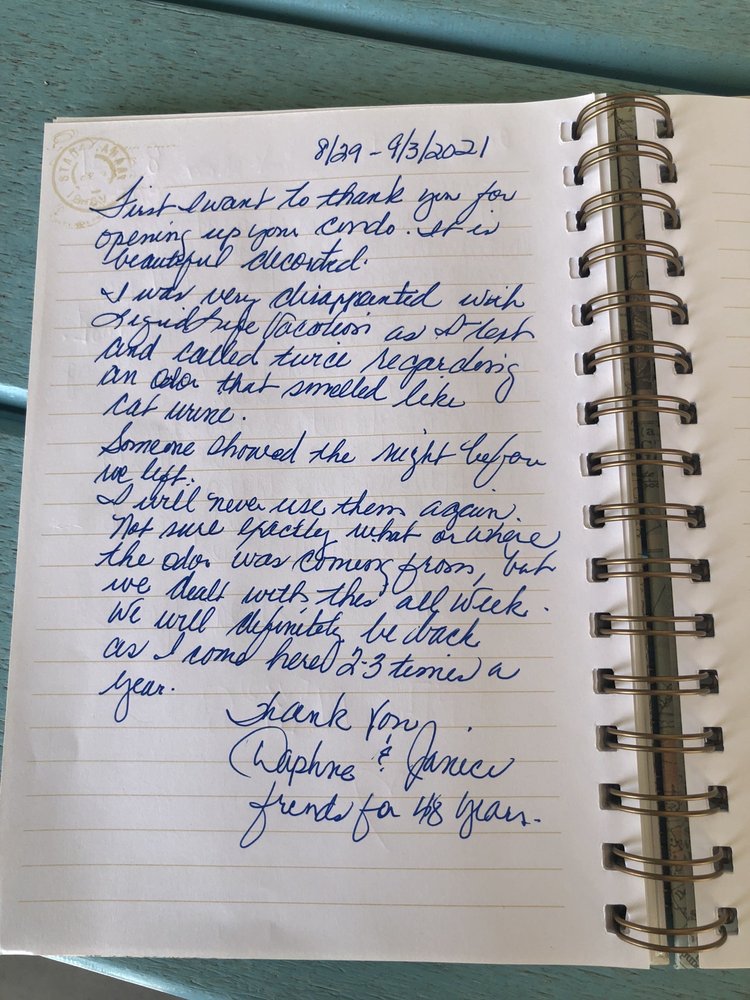 8/29 - 9/3/2021
First I want to thank you for
opening up your condo. It is
beautiful decorted.
I was very disappointed with
Liquid Life Vacation as I text
and called twice regarding
an odor that smelled like
cat urine.
Someone showed the night before
we left.
I will never use them again.
Not sure exactly what or where
the odor was coming from, but
we dealt with this all week.
We will definitely be back
as I come here 2-3 times a
year.
Thank You
Daphne & Janice
frends for 48 years.